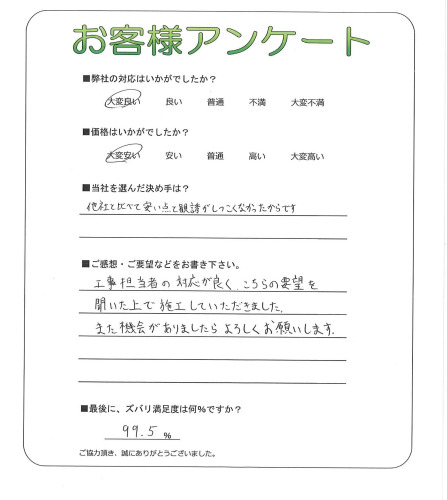 お客様アンケート
■弊社の対応はいかがでしたか？
大変良い 良い 普通 不満 大変不満
■価格はいかがでしたか？
大変安い 安い 普通 高い 大変高い
■当社を選んだ決め手は？
他社と比べて安い点と勧誘がしつこくなかったからです
■ご感想・ご要望などをお書き下さい。
工事担当者の対応が良く、こちらの要望を
聞いた上で施工していただきました。
また機会がありましたらよろしくお願いします。
■最後に、ズバリ満足度は何％ですか？
99.5 ％
ご協力頂き、誠にありがとうございました。